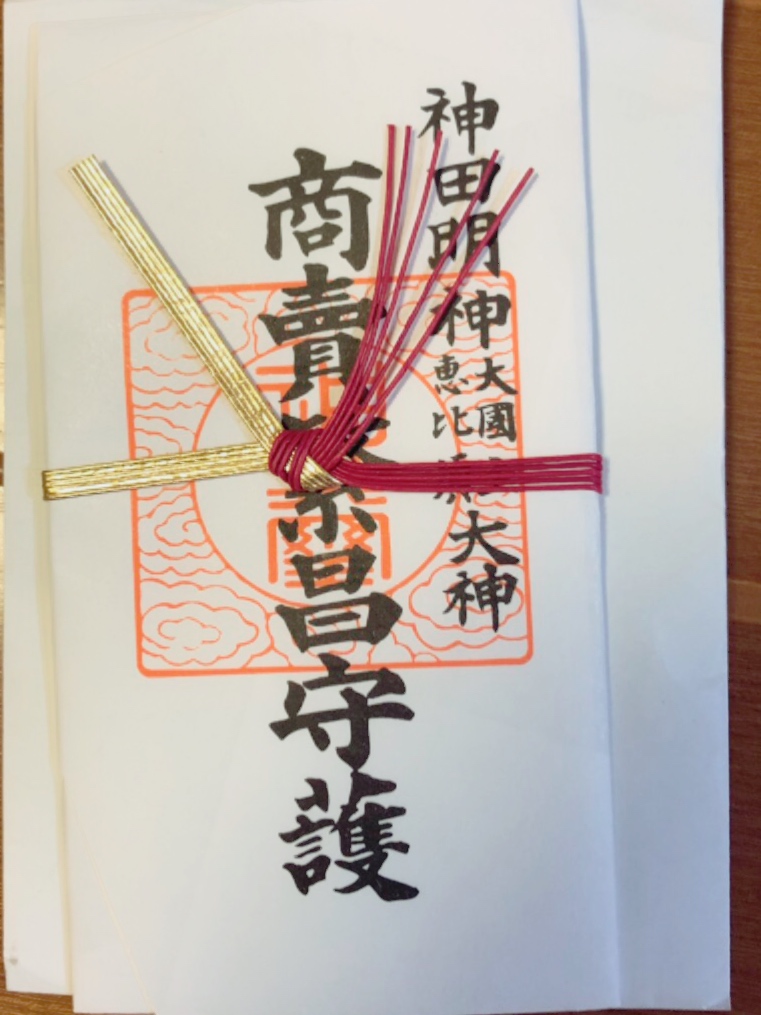 神田明神
大國
恵比
大神
商賣繁昌守護